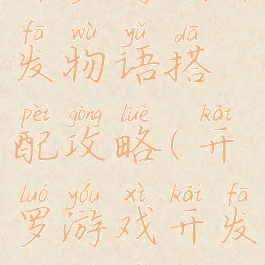 fā wù yǔ dā
发物语搭
pèi gōng lüè kāi
配攻略(开
luó yóu xì kāi fā
罗游戏开发